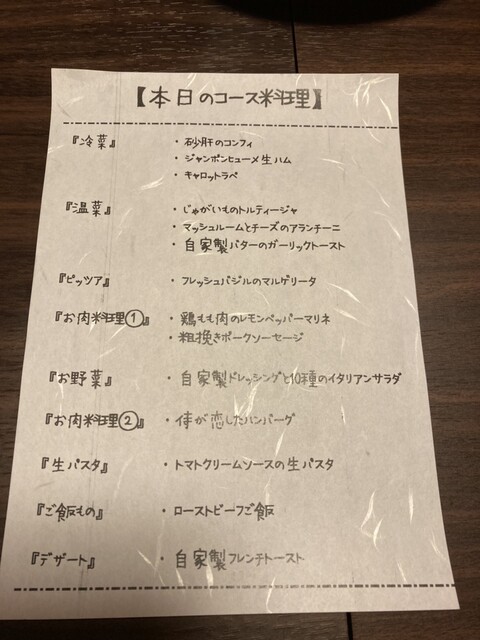 【本日のコース料理】
『冷菜』 ・砂肝のコンフィ
・ジャンボンヒューメ生ハム
・キャロットラペ
『温菜』 ・じゃがいものトルティージャ
・マッシュルームとチーズのアランチーニ
・自家製バターのガーリックトースト
『ピッツア』 ・フレッシュバジルのマルゲリータ
『お肉料理①』 ・鶏もも肉のレモンペッパーマリネ
・粗挽きポークソーセージ
『お野菜』 ・自家製ドレッシングと10種のイタリアンサラダ
『お肉料理②』 ・侍が恋したハンバーグ
『生パスタ』 ・トマトクリームソースの生パスタ
『ご飯もの』 ・ローストビーフご飯
『デザート』 ・自家製フレンチトースト